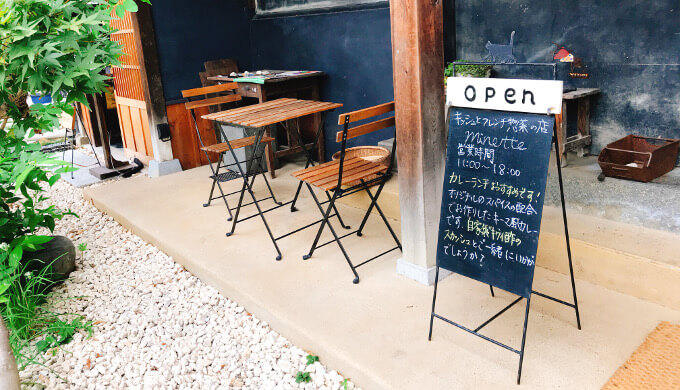 open
キッシュとフレンチ惣菜の店
minette
営業時間
11:00~18:00
カレーランチおすすめです!
オリジナルのスパイスの配合
でお作りしたキーマ風カレー
です。自家製キウイ酢の
スカッシュとご一緒にいかが
でしょうか?